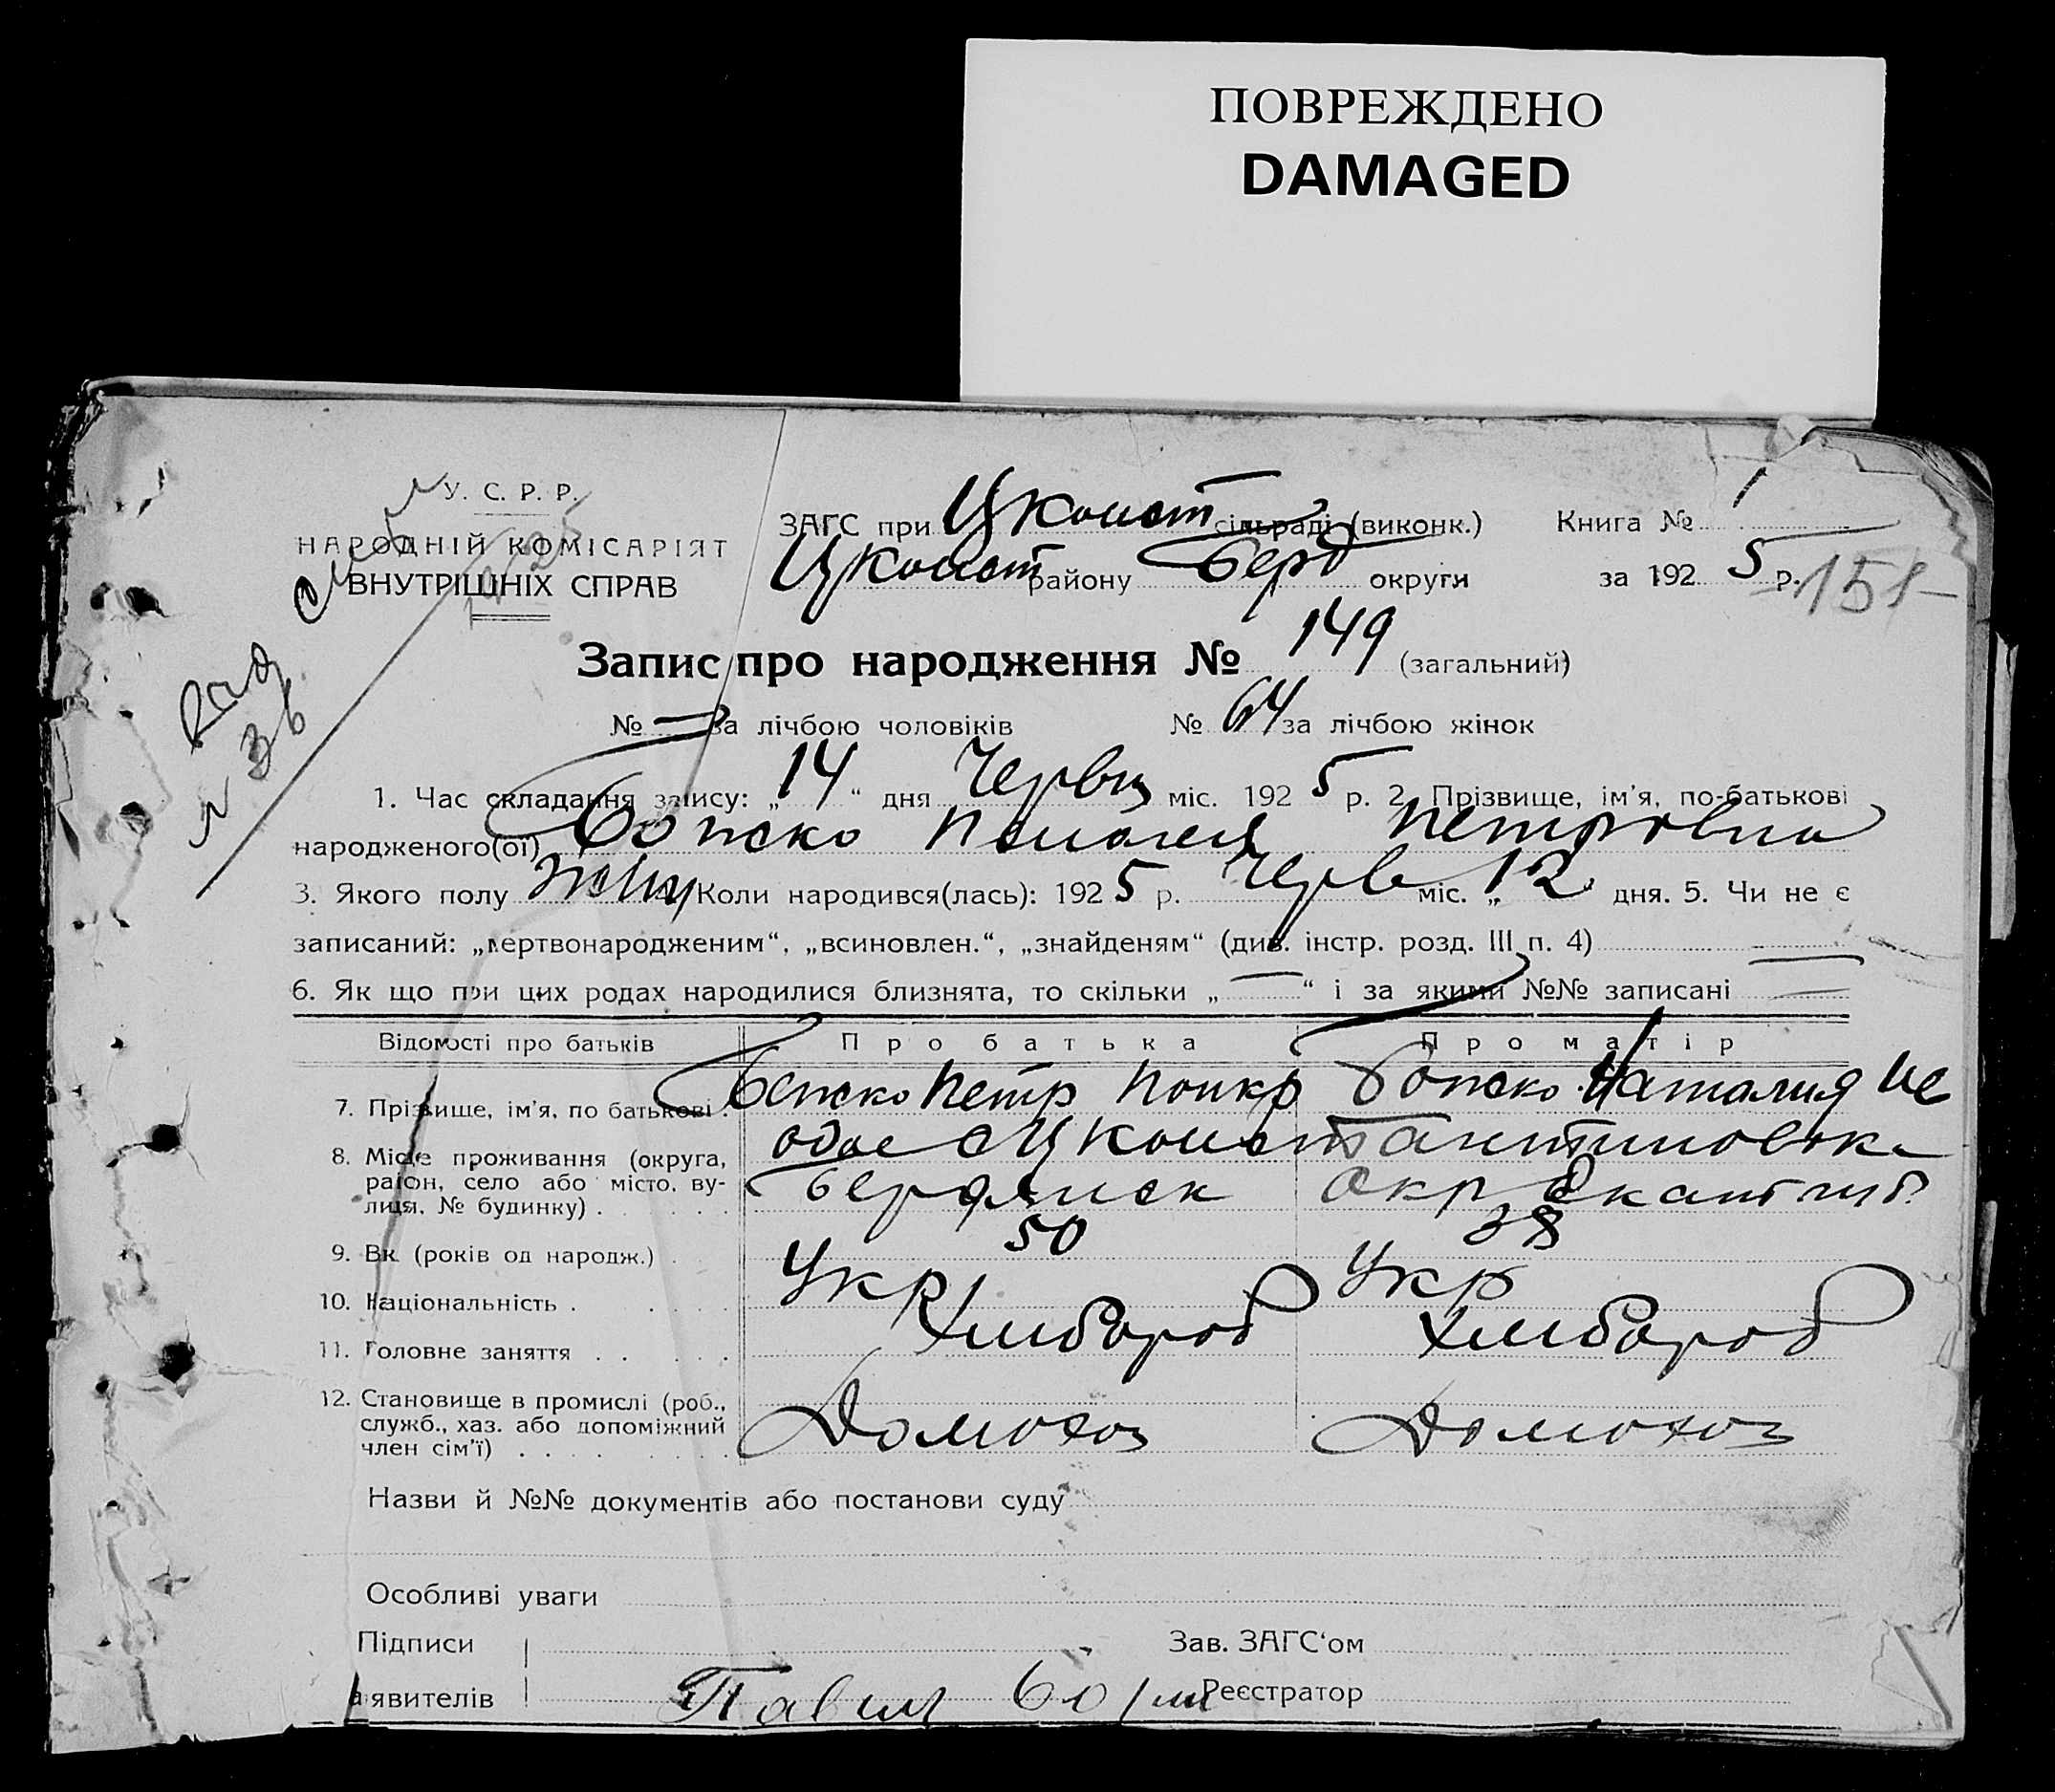 ПОВРЕЖДЕНО
DAMAGED
У. С. Р. Р.
НАРОДНІЙ КОМІСАРІЯТ
ВНУТРІШНІХ СПРАВ
ЗАГС при Цконст сільраді (виконк.) Книга № 1
Цконст району Берд округи за 1925 р. 151
Запис про народження № 149 (загальний)
№ — за лічбою чоловіків № 64 за лічбою жінок
1. Час складання запису: „14“ дня Червц міс. 1925 р. 2. Прізвище, ім'я, по-батькові
народженого(ої) Петровна
3. Якого полу жін Коли народився(лась): 1925 р. Черв міс. „12 дня. 5. Чи не є
записаний: „мертвонародженим“, „всиновлен.“, „знайденям“ (див. інстр. розд. III п. 4) —
6. Як що при цих родах народилися близнята, то скільки „—“ і за якими №№ записані —
Відомості про батьків Про батька Про матір
7. Прізвище, ім'я, по батькові Петр Наталия
8. Місце проживання (округа, район, село або місто, вулиця, № будинку) Цконстантиновк
Бердянск Окр
9. Вік (років од народж.) 50 38
10. Національність Укр Укр
11. Головне заняття Хлибороб Хлибороб
12. Становище в промислі (роб., служб., хаз. або допоміжний член сім'ї) Домохоз Домохоз
Назви й №№ документів або постанови суду
Особливі уваги
Підписи Зав. ЗАГС'ом
заявителів Реєстратор